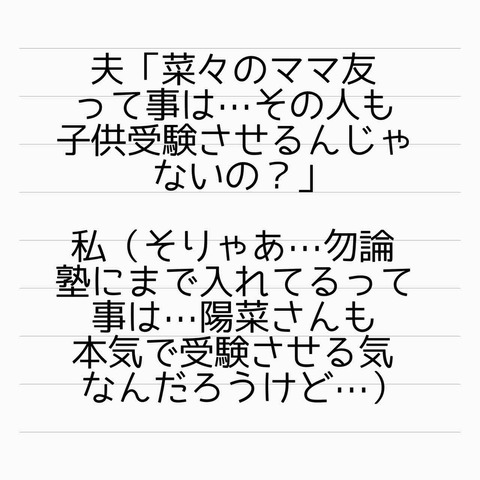 夫「菜々のママ友
って事は…その人も
子供受験させるんじゃ
ないの？」
私（そりゃあ…勿論
塾にまで入れてるって
事は…陽菜さんも
本気で受験させる気
なんだろうけど…）